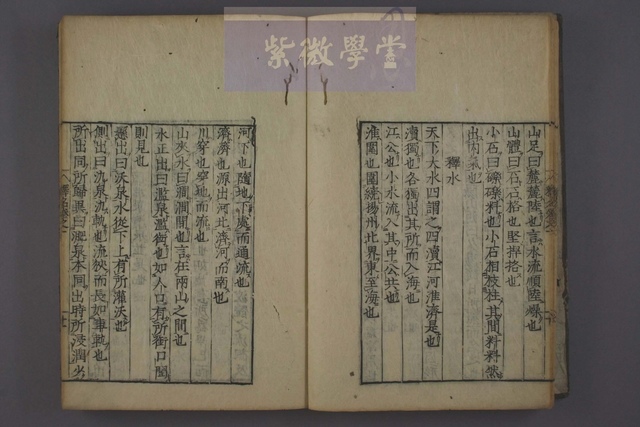 紫微學堂
山足曰麓麓陸也言水流順陸燥也
山體曰石石格也堅捍格也
小石曰礫礫料也小石相枝柱其間料料然
出内氣也
釋水
天下大水四謂之四瀆江河淮濟是也
瀆獨也各獨出其所而入海也
江公也小水流入其中公共也
淮圍也圍繞揚州北界東至海也
河下也隨地下處而通流也
濟濟也源出河北濟河而南也
川穿也穿地而流也
山夾水曰澗澗間也言在兩山之間也
水正出曰濫泉濫銜也如人口有所銜口闓
則見也
懸出曰沃泉水從下上有所灌沃也
側出曰氿泉氿軌也流狹而長如車軌也
所出同所歸異曰淝泉本同出時所浸潤少